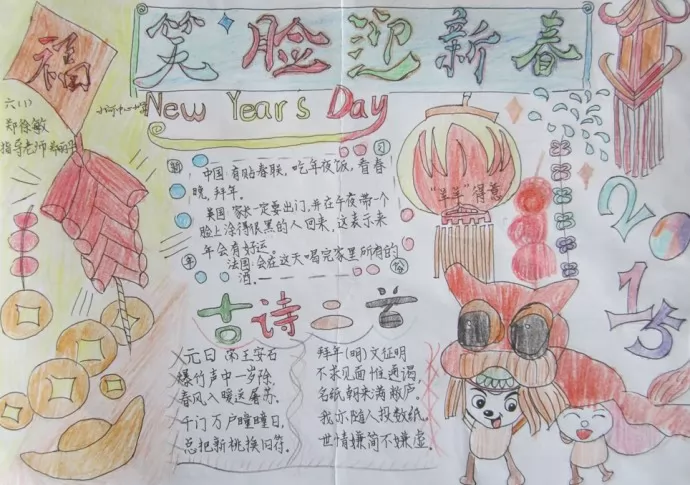 福
笑脸迎新春
New Year's Day
六(1)
郑徐敏
指导老师
中国有贴春联，吃年夜饭，看春
晚，拜年。
英国家长一定要出门，并在午夜带一个
脸上涂得很黑的人回来，这表示来
年会有好运。
法国会在这天喝完家里所有的
酒。
习
俗
"羊羊"得意
2015
古诗二首
元日 宋王安石
爆竹声中一岁除，
春风入暖送屠苏。
千门万户曈曈日，
总把新桃换旧符。
拜年(明)文征明
不求见面惟通谒，
名纸朝来满敝庐。
我亦随人投数纸，
世情嫌简不嫌虚。